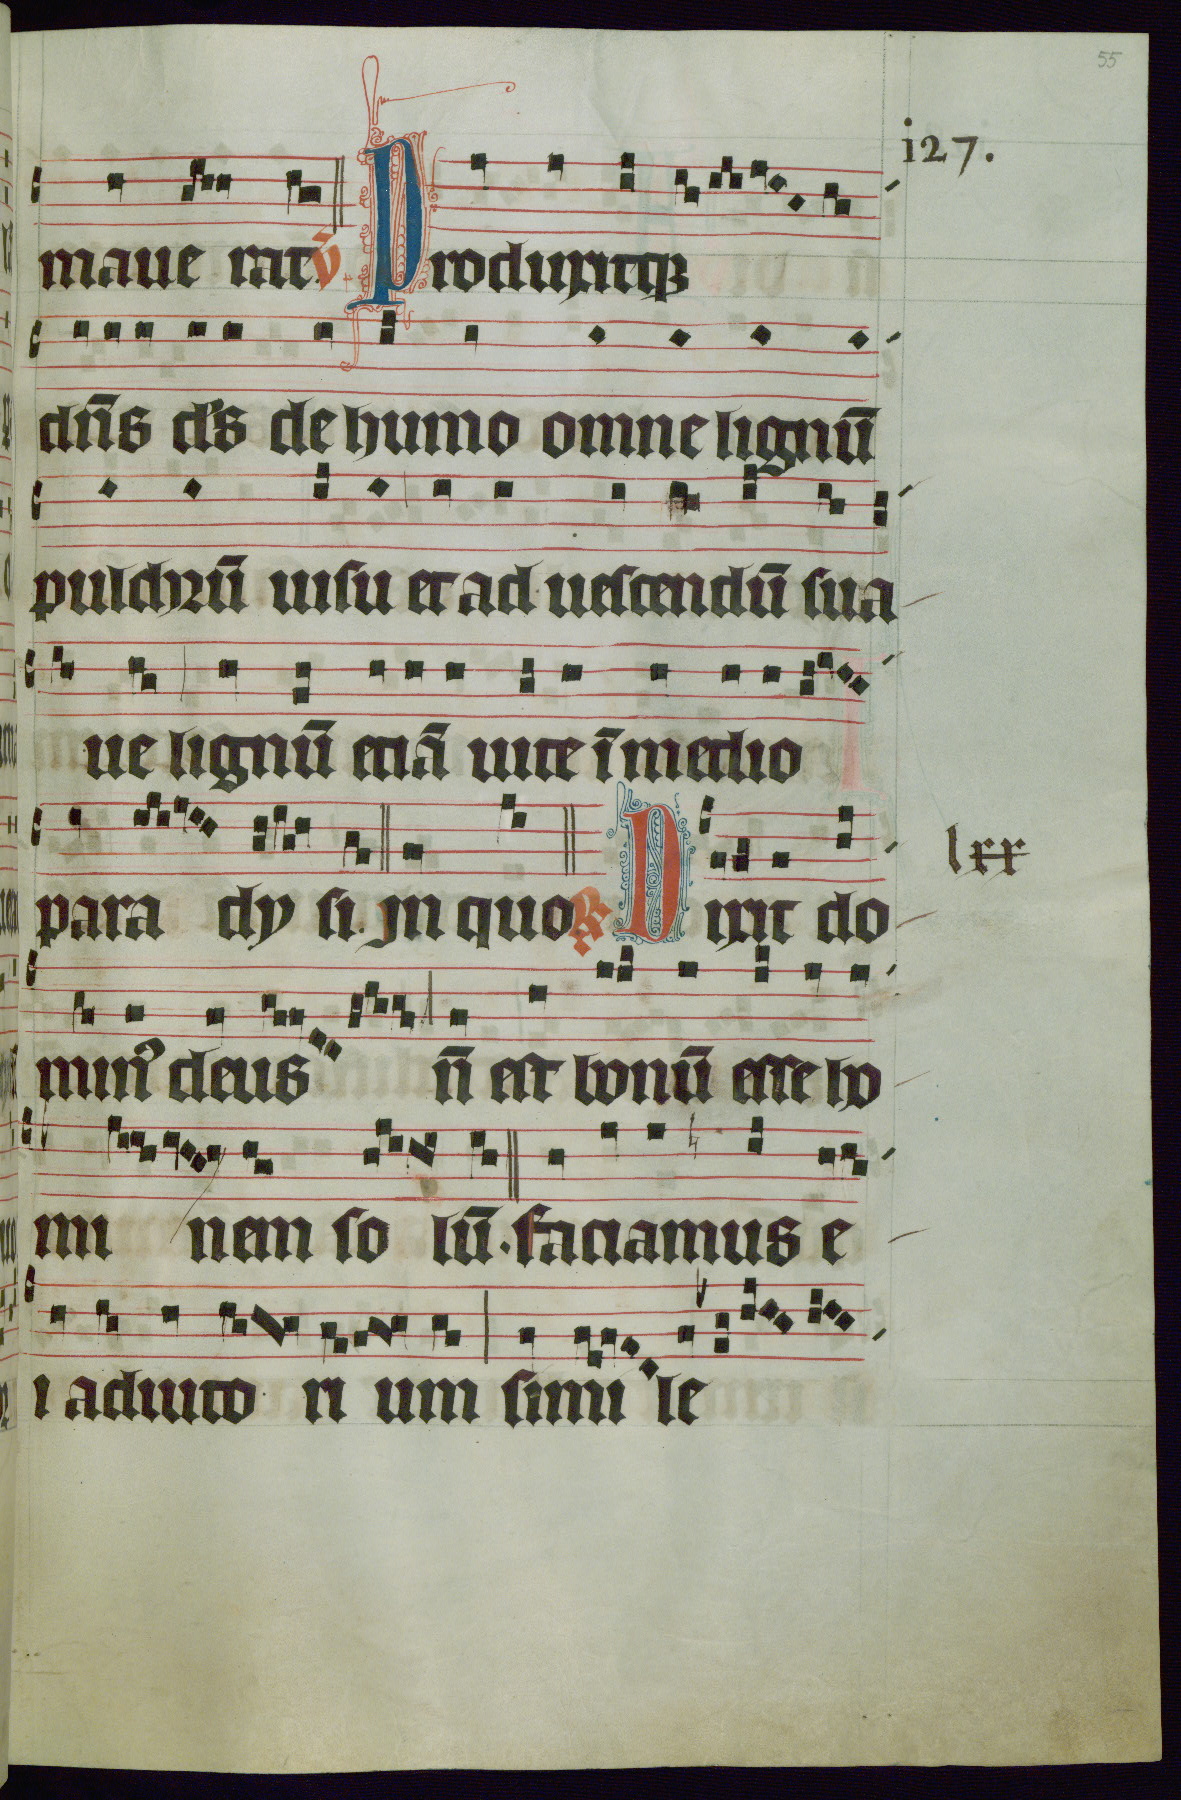 55
i27.
maue rat. v̄ Produxitqꝫ
dn̄s d's de humo omne lignū
pulchrū uisu et ad uescendū sua
ue lignū etiā uite ī medio
para dy si. jn quo. ℟ Dixit do
lxx
minꝰ deus n̄ est bonū esse ho
mi nem so lū. faciamus e
i adiuto ri um simi le